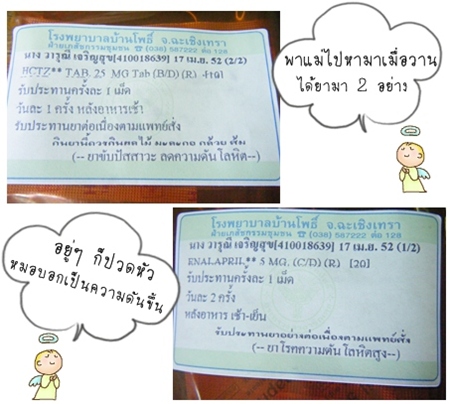 โรงพยาบาลบ้านโพธิ์ จ.ฉะเชิงเทรา
ฝ่ายเภสัชกรรมชุมชน ☎ (038) 587222 ต่อ 128
นาง วารุณี เจริญสุข[410018639] 17 เม.ย. 52 (2/2)
HCTZ** TAB. 25 MG Tab (B/D) (R)
รับประทานครั้งละ 1 เม็ด
วันละ 1 ครั้ง หลังอาหารเช้า
รับประทานยาต่อเนื่องตามแพทย์สั่ง
กินยานี้ควรกินผลไม้ มะละกอ กล้วย ส้ม
(-- ยาขับปัสสาวะ ลดความดันโลหิต--)
พาแม่ไปหามาเมื่อวาน
ได้ยามา 2 อย่าง
อยู่ๆ ก็ปวดหัว
หมอบอกเป็นความดันขึ้น
โรงพยาบาลบ้านโพธิ์ จ.ฉะเชิงเทรา
ฝ่ายเภสัชกรรมชุมชน ☎ (038) 587222 ต่อ 128
นาง วารุณี เจริญสุข[410018639] 17 เม.ย. 52 (1/2)
ENALAPRIL ** 5 MG. (C/D) (R) [20]
รับประทานครั้งละ 1 เม็ด
วันละ 2 ครั้ง
หลังอาหาร เช้า-เย็น
รับประทานยาอย่างต่อเนื่องตามแพทย์สั่ง
(-- ยาโรคความดันโลหิตสูง--)